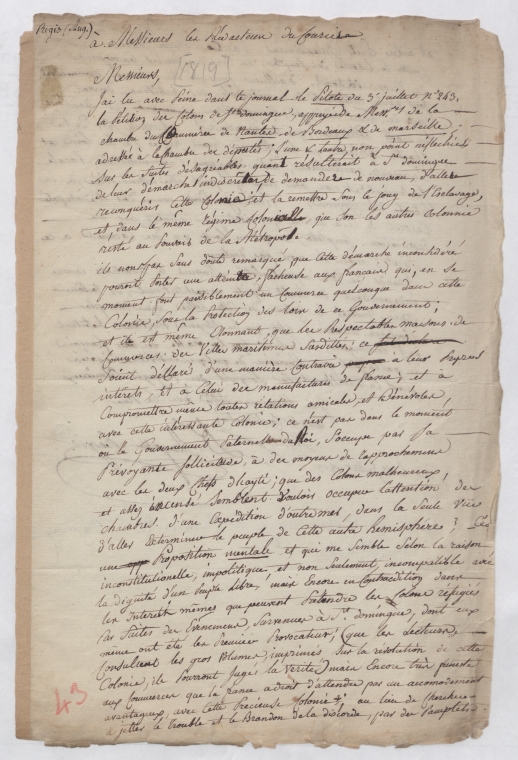 Regis (Aug.)
à Messieurs les Rédacteurs du Courrier
[1819]
Messieurs,
J'ai lu avec Peine dans le journal le Pilote du 3 juillet n° 243,
la Pétition des Colons de St domingue, appuyée de Mess.rs de la
chambre du Commerce de Nantes, de Bordeaux & de marseille
adressée à la chambre des députés; L'une & l'autre, non point réfléchies
sur les Suites désagréables quant résulteroit à St domingue
de leur démarche indiscrette de demander de nouveau, d'aller
reconquérir cette Colonie et la remettre Sous le joug de l'Esclavage,
et dans le même régime Colonialle, que son les autres Colonnie
resté au Pouvoir de la Métropole.
ils n'ont pas Sans doute remarqué que cette démarche inconsidéré
pouvoit Porter une atteinte facheuse aux francais qui, en ce
moment font paisiblement un Commerce quelconque dans cette
Colonie, Sous la Protection des Loix de ce Gouvernement;
et il est même étonnant, que les Respectables maisons de
Commerces des Villes maritimes Sardittes, ce
Soient déclaré d'une manière Contraire à leur Propres
interets, et à Celui des manufactures de france, et à
Compromettre même toutes relations amicales et Bénévoles
avec cette intéressante Colonie; ce n'est pas dans le moment
où le Gouvernement Paternelle du Roi, S'occupe par Sa
Prévoyante Sollicitude, à des moyens de rapprochement
avec les deux Chefs d'hayti; que des Colons malheureux,
et assez insensé Semblent Vouloir occuper l'attention des
chambres d'une Expédition d'outremer, dans la Seule Vue
d'aller Exterminer le peuple de Cette autre hemisphere?
une Proposition mentale et qui me Semble Selon la raison
inconstitutionelle, impolitique, et non Seulement, incompatible avec
la dignité d'un Peuple Libre, mais Encore en Contradiction dans
les Interets mêmes qui peuvent S'attendre les Colons réfugiés
Par Suites des Evénemens Survenues à St domingue, dont eux
même ont été les Premier Provocateur, (que les Lecteurs
Consultent les gros Volumes imprimés Sur la révolution de cette
Colonie, ils Pourront jugés la Vérité) mais Encore très funeste
aux Commerces que la france a droit d'attendre par un acomodement
avantageux, avec cette Precieuse Colonie, au lieu de chercher
à jetter le trouble et le Brandon de la discorde, par des Pamphlets
43